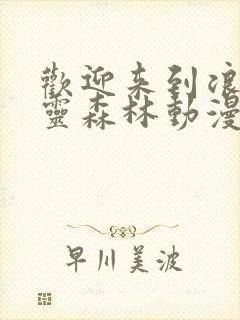 歡迎来到浪
靈森林動漫
早川美波